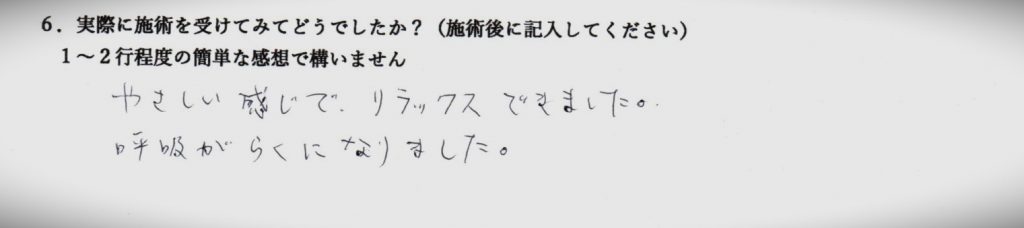 6．実際に施術を受けてみてどうでしたか？（施術後に記入してください）
1～2行程度の簡単な感想で構いません
やさしい感じで、リラックスできました。
呼吸がらくになりました。